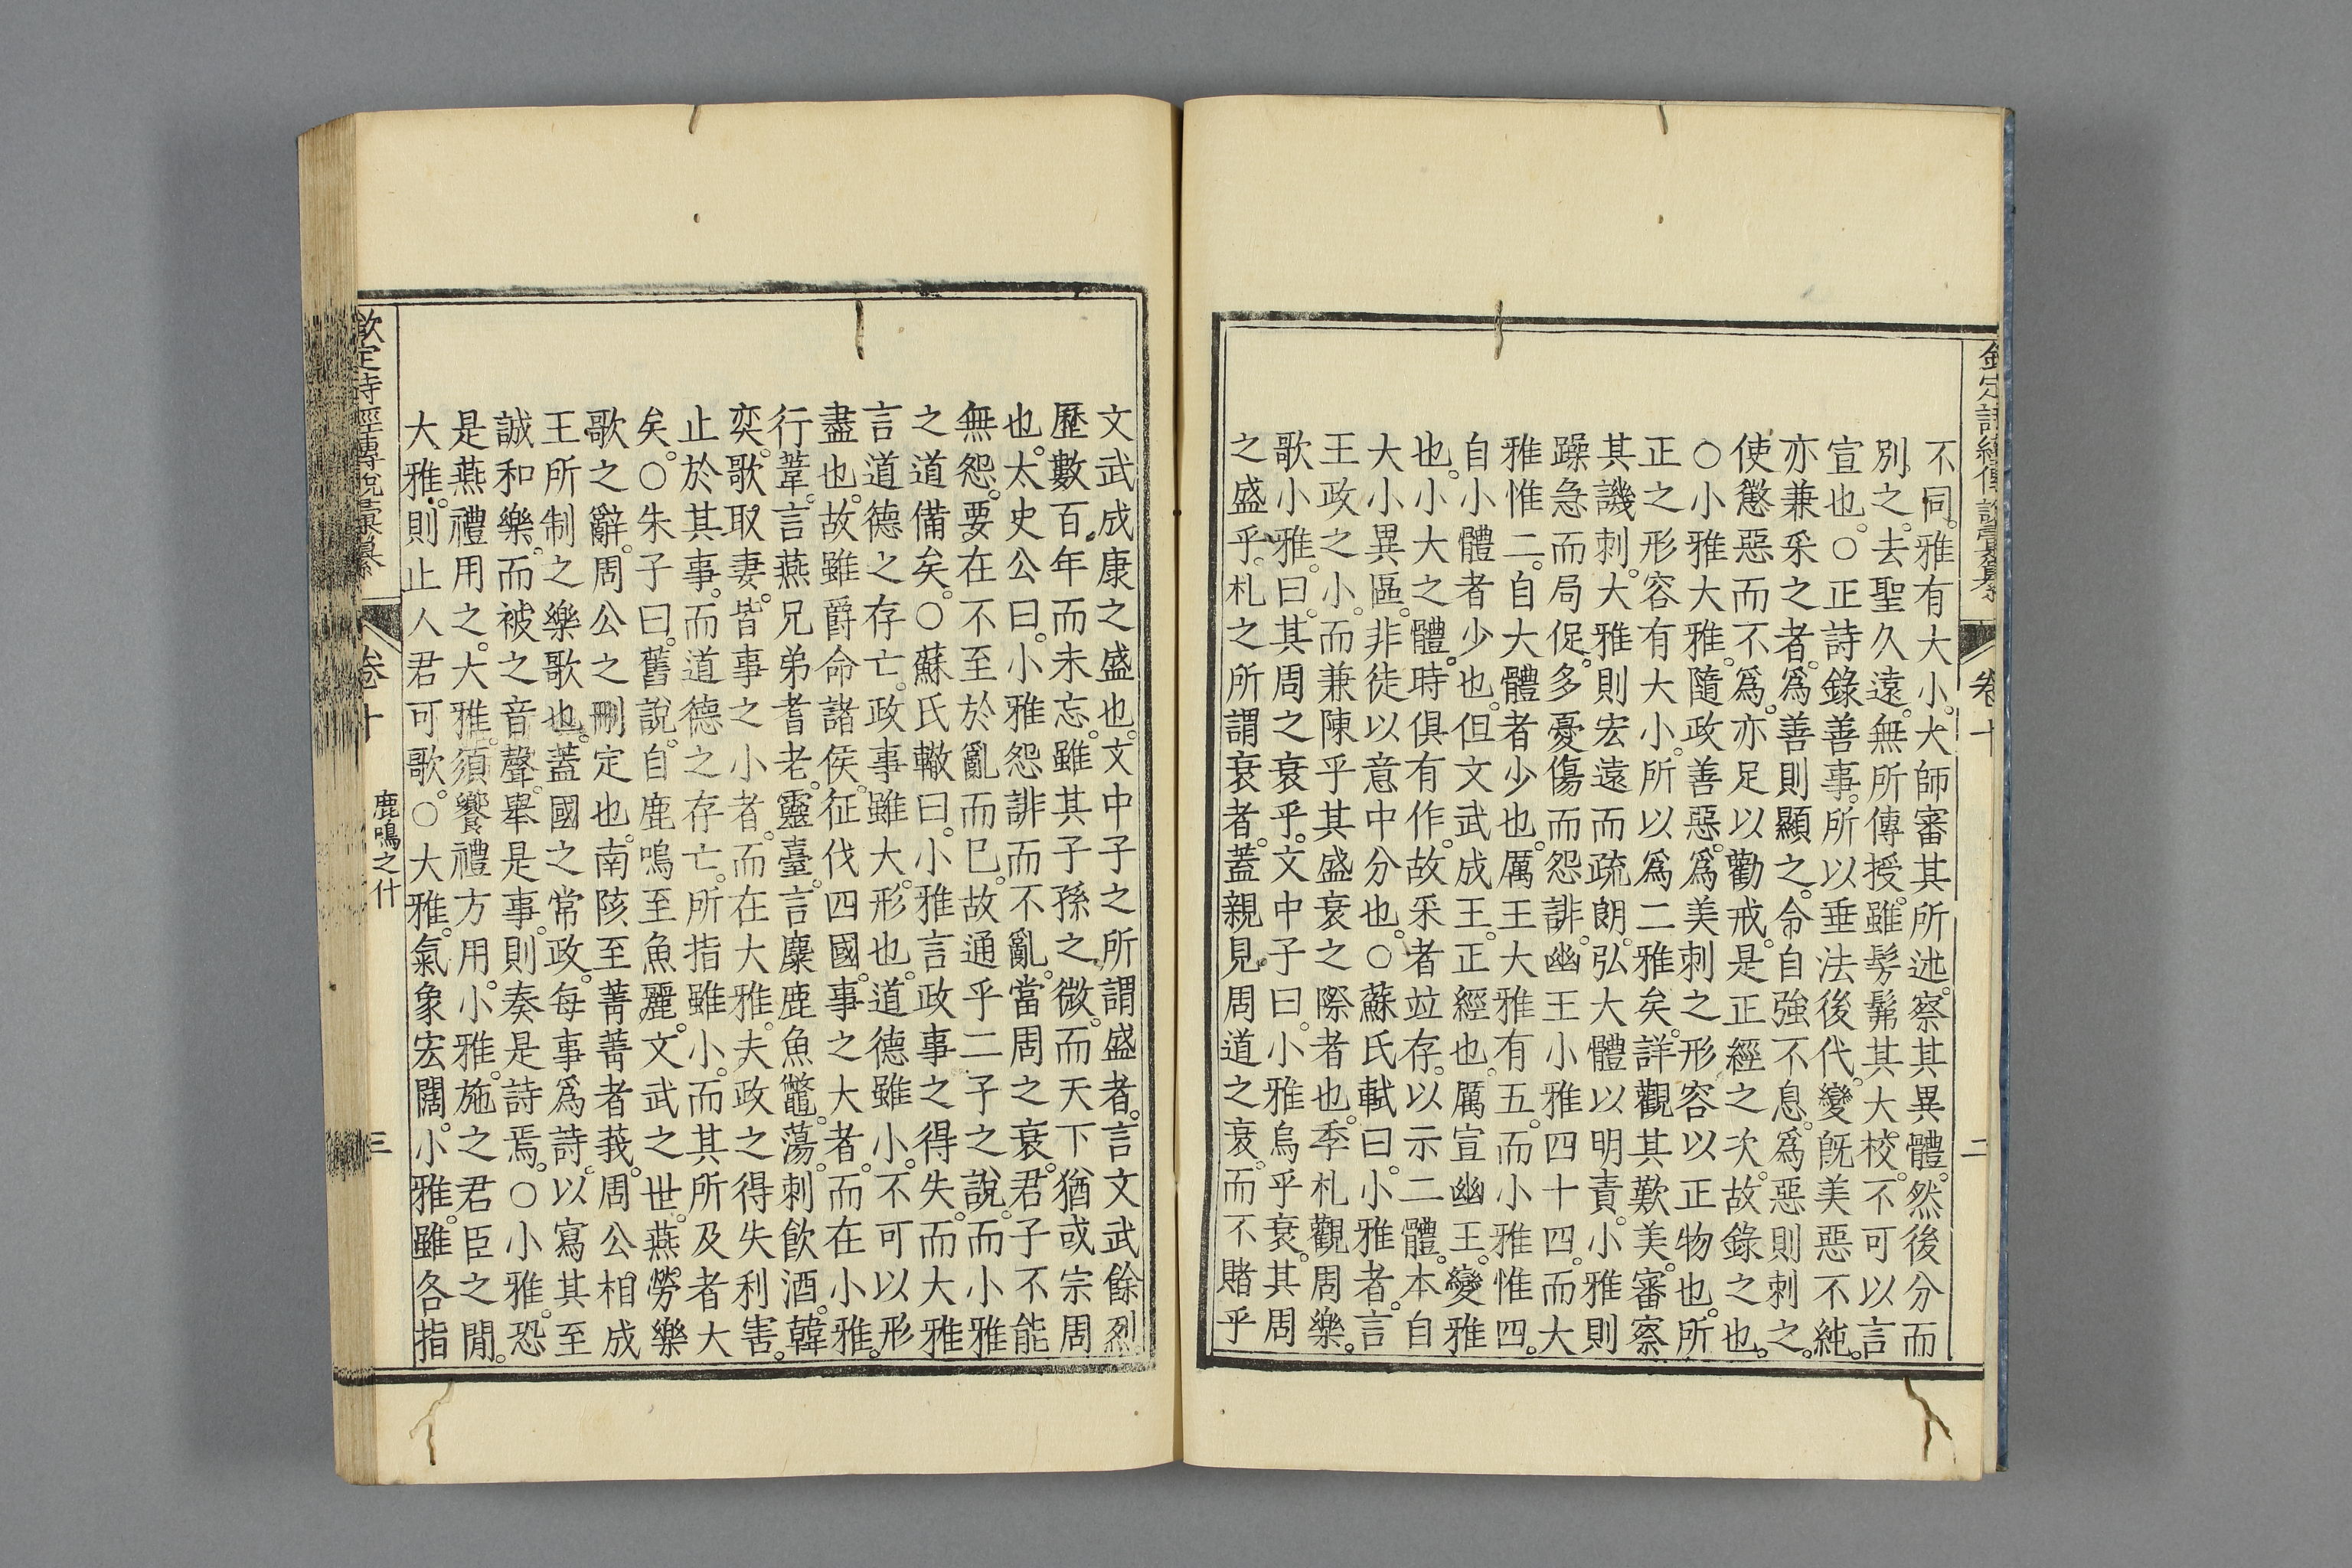 欽定詩經傳說彙纂 卷十 二
不同。雅有大小。大師審其所述。察其異體。然後分而
別之。去聖久遠。無所傳授。雖髣髴其大校。不可以言
宣也。○正詩錄善事。所以垂法後代。變旣美惡不純。
亦兼采之者。爲善則顯之。令自強不息。爲惡則刺之。
使懲惡而不爲。亦足以勸戒。是正經之次。故錄之也。
○小雅大雅。隨政善惡。爲美刺之形容以正物也。所
正之形容有大小。所以爲二雅矣。詳觀其歎美。審察
其譏刺。大雅則宏遠而疏朗。弘大體以明責。小雅則
躁急而局促。多憂傷而怨誹。幽王小雅四十四。而大
雅惟二。自大體者少也。厲王大雅有五。而小雅惟四。
自小體者少也。但文武成王。正經也。厲宣幽王。變雅
也。小大之體。時俱有作。故采者竝存。以示二體。本自
大小異區。非徒以意中分也。○蘇氏軾曰。小雅者。言
王政之小。而兼陳乎其盛衰之際者也。季札觀周樂。
歌小雅。曰。其周之衰乎。文中子曰。小雅烏乎衰。其周
之盛乎。札之所謂衰者。蓋親見周道之衰。而不賭乎
文武成康之盛也。文中子之所謂盛者。言文武餘烈
歷數百年而未忘。雖其子孫之微。而天下猶或宗周
也。太史公曰。小雅怨誹而不亂。當周之衰。君子不能
無怨。要在不至於亂而已。故通乎二子之說。而小雅
之道備矣。○蘇氏轍曰。小雅言政事之得失。而大雅
言道德之存亡。政事雖大。形也。道德雖小。不可以形
盡也。故雖爵命諸侯。征伐四國。事之大者。而在小雅。
行葦。言燕兄弟耆老。靈臺。言麋鹿魚鼈。蕩。刺飲酒。韓
奕。歌取妻。皆事之小者。而在大雅。夫政之得失利害。
止於其事。而道德之存亡。所指雖小。而其所及者大
矣。○朱子曰。舊說。自鹿鳴至魚麗。文武之世。燕勞樂
歌之辭。周公之刪定也。南陔至菁菁者莪。周公相成
王所制之樂歌也。蓋國之常政。每事爲詩。以寫其至
誠和樂。而被之音聲。舉是事。則奏是詩焉。○小雅。恐
是燕禮用之。大雅。須饗禮方用。小雅。施之君臣之閒。
大雅。則止人君可歌。○大雅。氣象宏闊。小雅。雖各指
欽定詩經傳說彙纂 卷十 鹿鳴之什 三